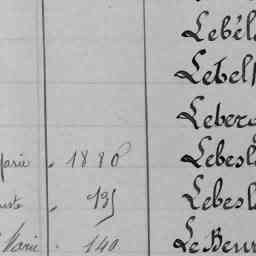 Lebél
Lebel
Leber
Marie . 1886 Lebesl
uste . 135 Lebesl
Marie . 140 Le Beur